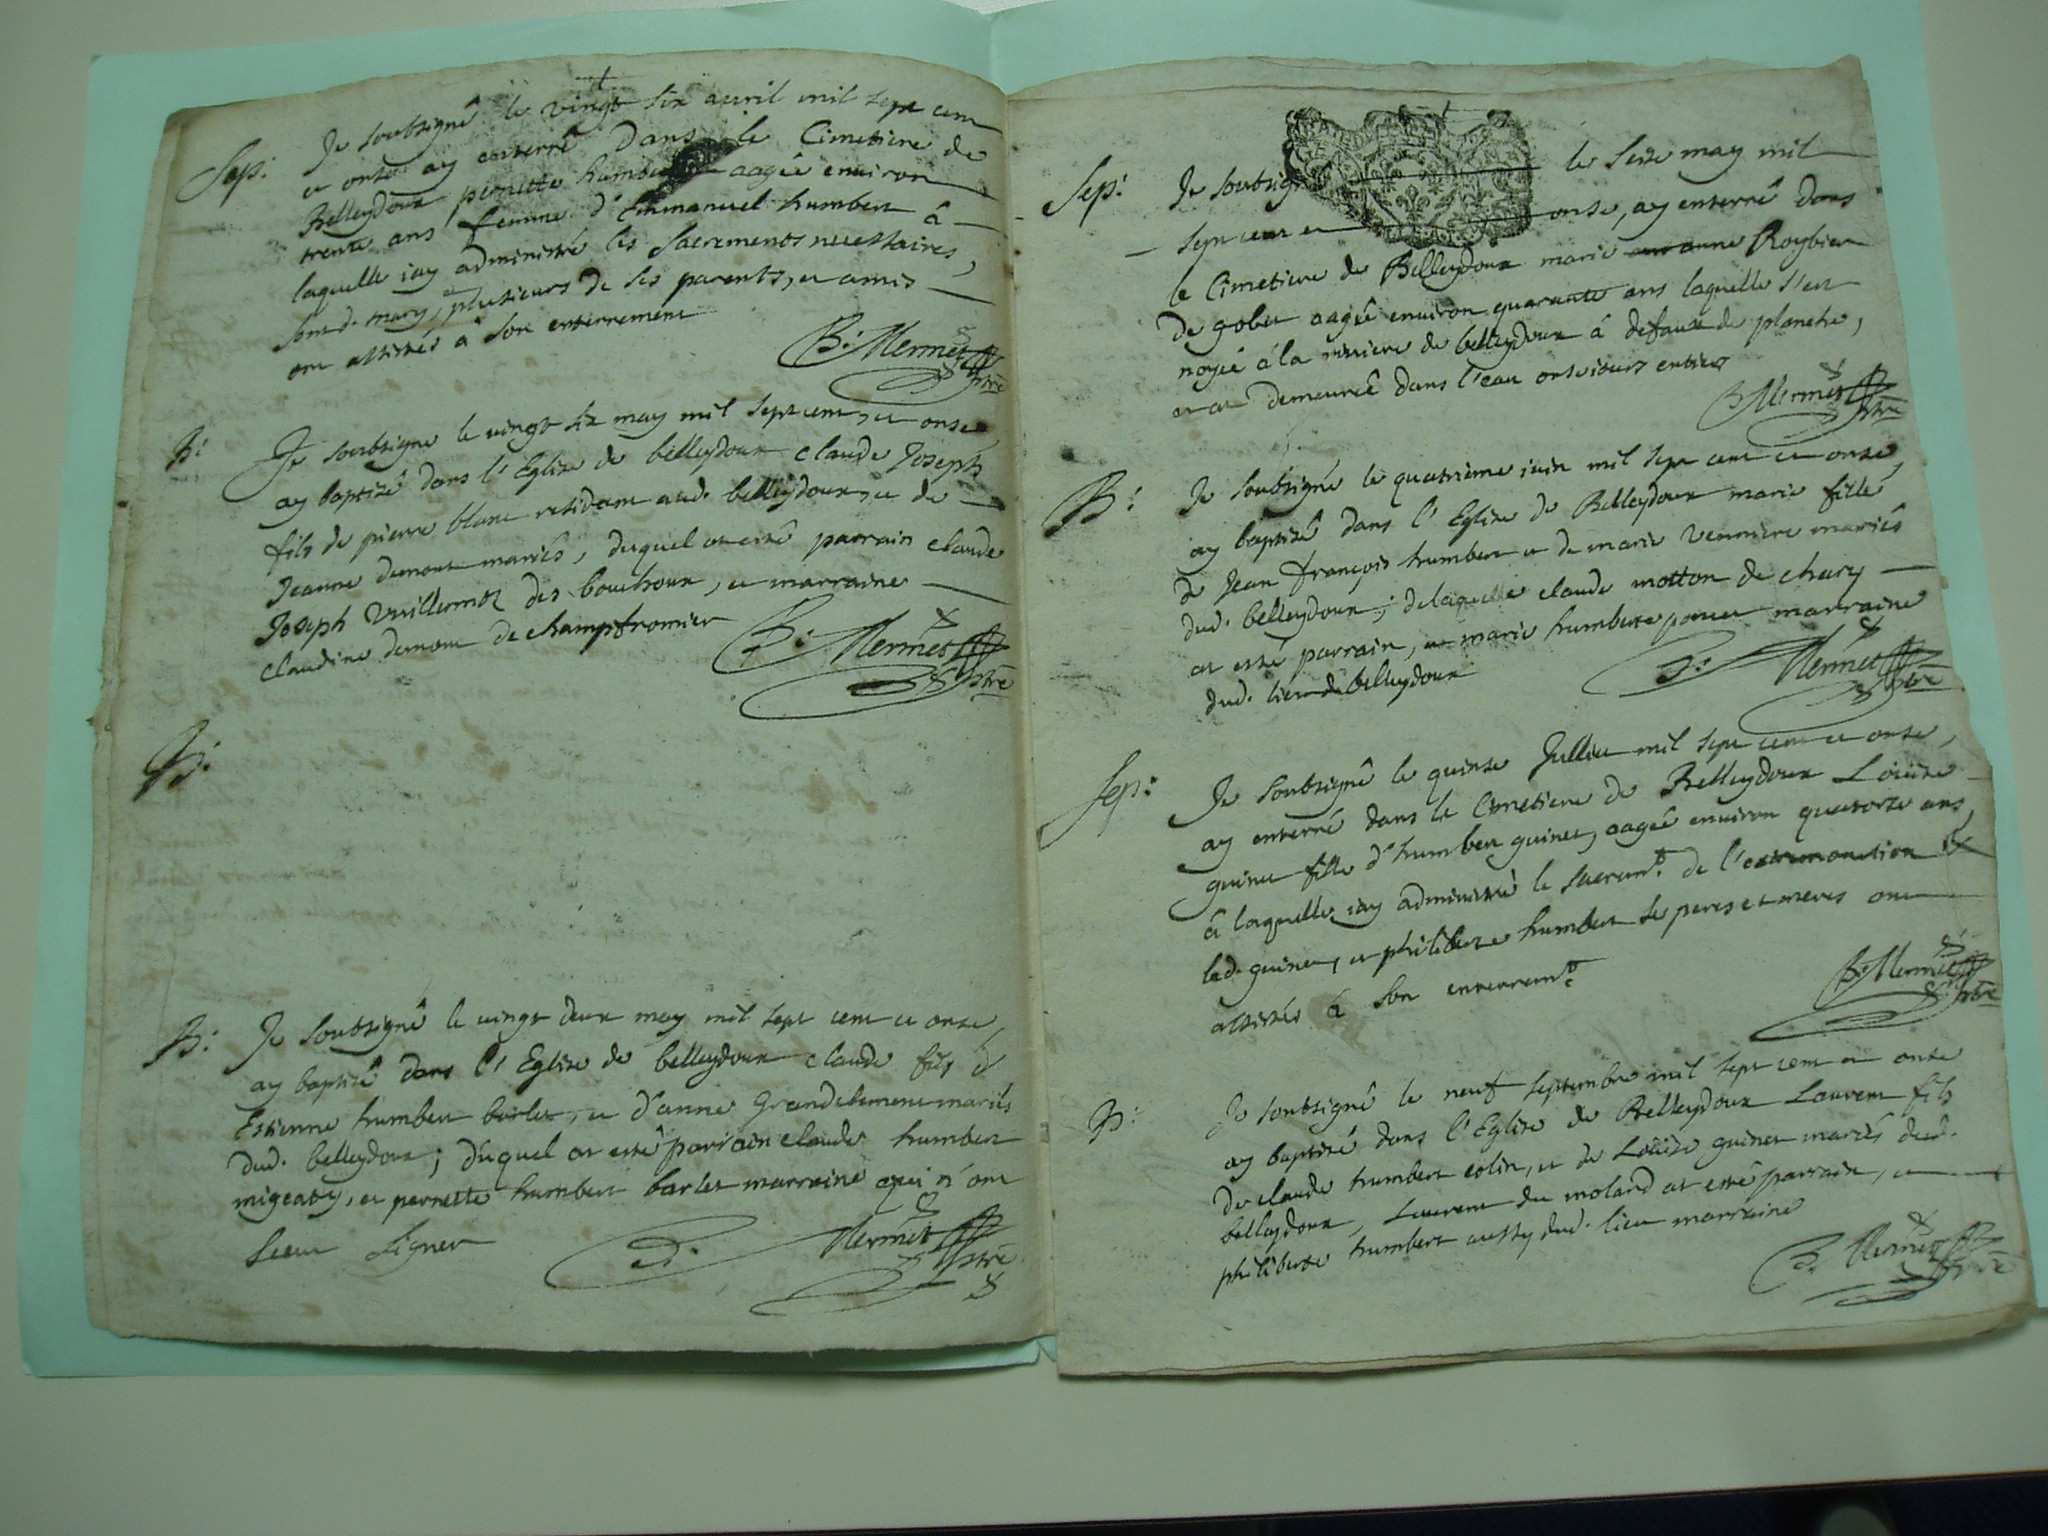 Sep: Je soubsigné le vingt six avril mil sept cent
et onse ay enterré Dans le Cimetiere de
Belleydoux pernette humbert aagée environ
trente ans femme d'Emmanuel humbert â
laquelle iay administré les Sacrements necessaires,
sond. mary, plusieurs de ses parents, et amis
ont assistés â son enterrement
B: Mermet pstre
B: Je soubsigne le vingt six may mil sept cent, et onse,
ay baptisé dans l'Eglise de belleydoux claude Joseph
fils de pierre blanc residant aud. belleydoux, et de
Jeanne demont mariés, duquel at esté parrain claude
Joseph Vuillermoz des bouchoux, et marraine
claudine demont de champfromier
B: Mermet pstre
B:
B: Je soubsigné le vingt deux may mil sept cent et onse,
ay baptisé dans l'Eglise de belleydoux claude fils d'
Estienne humbert barlet, et d'anne Grandclement mariés
dud. belleydoux; duquel at esté parrain claude humbert
migeaty, et pernette humbert barlet marraine qui n'ont
sceu signer
B: Mermet pstre
Sep: Je soubsigné le seise may mil
sept cent et onse, ay enterré dans
le Cimetiere de Belleydoux marie anne Roybier
de gobet aagée environ quarante ans laquelle s'est
noyée â la riviere de belleydoux â defaux de planche,
et at demeurée dans l'eau onse iours entiers
B Mermet pstre
B: Je soubsigné le quatrième iuin mil sept cent et onse,
ay baptisé dans l'Eglise de Belleydoux marie fille
de Jean françois humbert et de marie Venniere mariés
dud. belleydoux; de laquelle claude motton de chary
at esté parrain, et marie humberte poncet marraine
dud. lieu de belleydoux
B: Mermet pstre
Sep: Je soubsigné le quinse Jullieu mil sept cent et onse,
ay enterré dans le Cimetiere de Belleydoux Loüise
guinet fille d'humbert guinet, aagée environ quatorse ans,
â laquelle iay administré le sacremt. de l'extremonction
led. guinet, et philiberte humbert se peres et meres ont
assistés â son enterremt.
B: Mermet pstre
B: Je soubsigné le neuf septembre mil sept cent et onse
ay baptisé dans l'Eglise de Belleydoux Laurent fils
de claude humbert colin, et de Loüise guinet mariés dud.
belleydoux, Laurent du molard at esté parrain, et
philiberte humbert aussy dud. lieu marraine
B. Mermet pstre